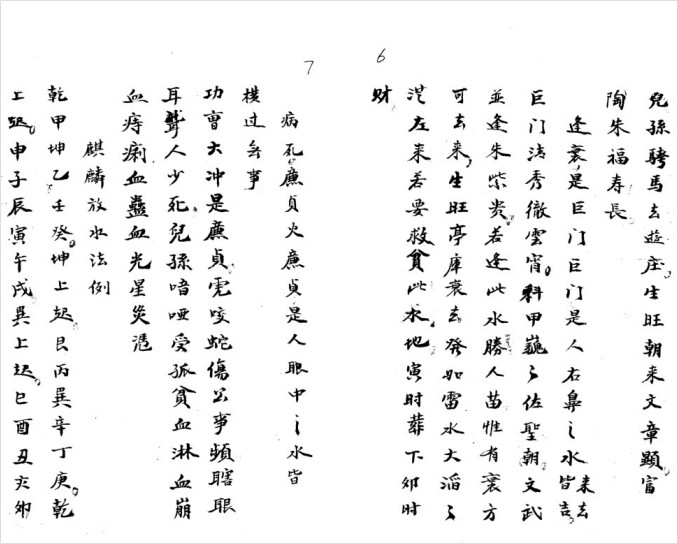 6
兒孫騎馬去遊庄。生旺朝来文章顯富
陶朱福寿長
逢衰是巨门巨门是人右鼻之水皆来去吉
巨门清秀徹雲霄。科甲巍々佐聖朝。文武
並逢朱紫贵。若逢此水勝人苗惟有衰方
可去来。生旺亭庫衰去發如雷水大滔々
従左来若要救貧此水。地寅时葬下夘时
财
7
病死廉貞火廉貞是人眼中之水皆
横过無事
功曹大冲是廉貞。虎咬蛇傷公事頻瞎眼
耳聾人少死。兒孫喑啞受孤貧血淋血崩
血痔痢血蠱血光星災
麒麟放水法例
乾甲坤乙壬癸。坤上起艮丙巽辛丁庚。乾
上起。申子辰寅午戌巽上起。巳酉丑亥夘